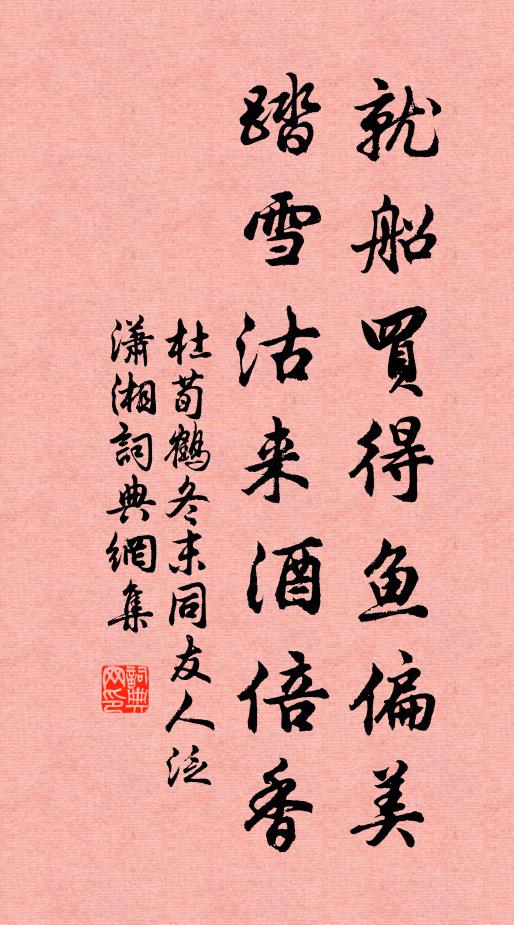 就船買得魚偏美
踏雪沽来酒倍香
杜荀鶴冬末同友人泛
瀟湘詞典網集
詞典
网印